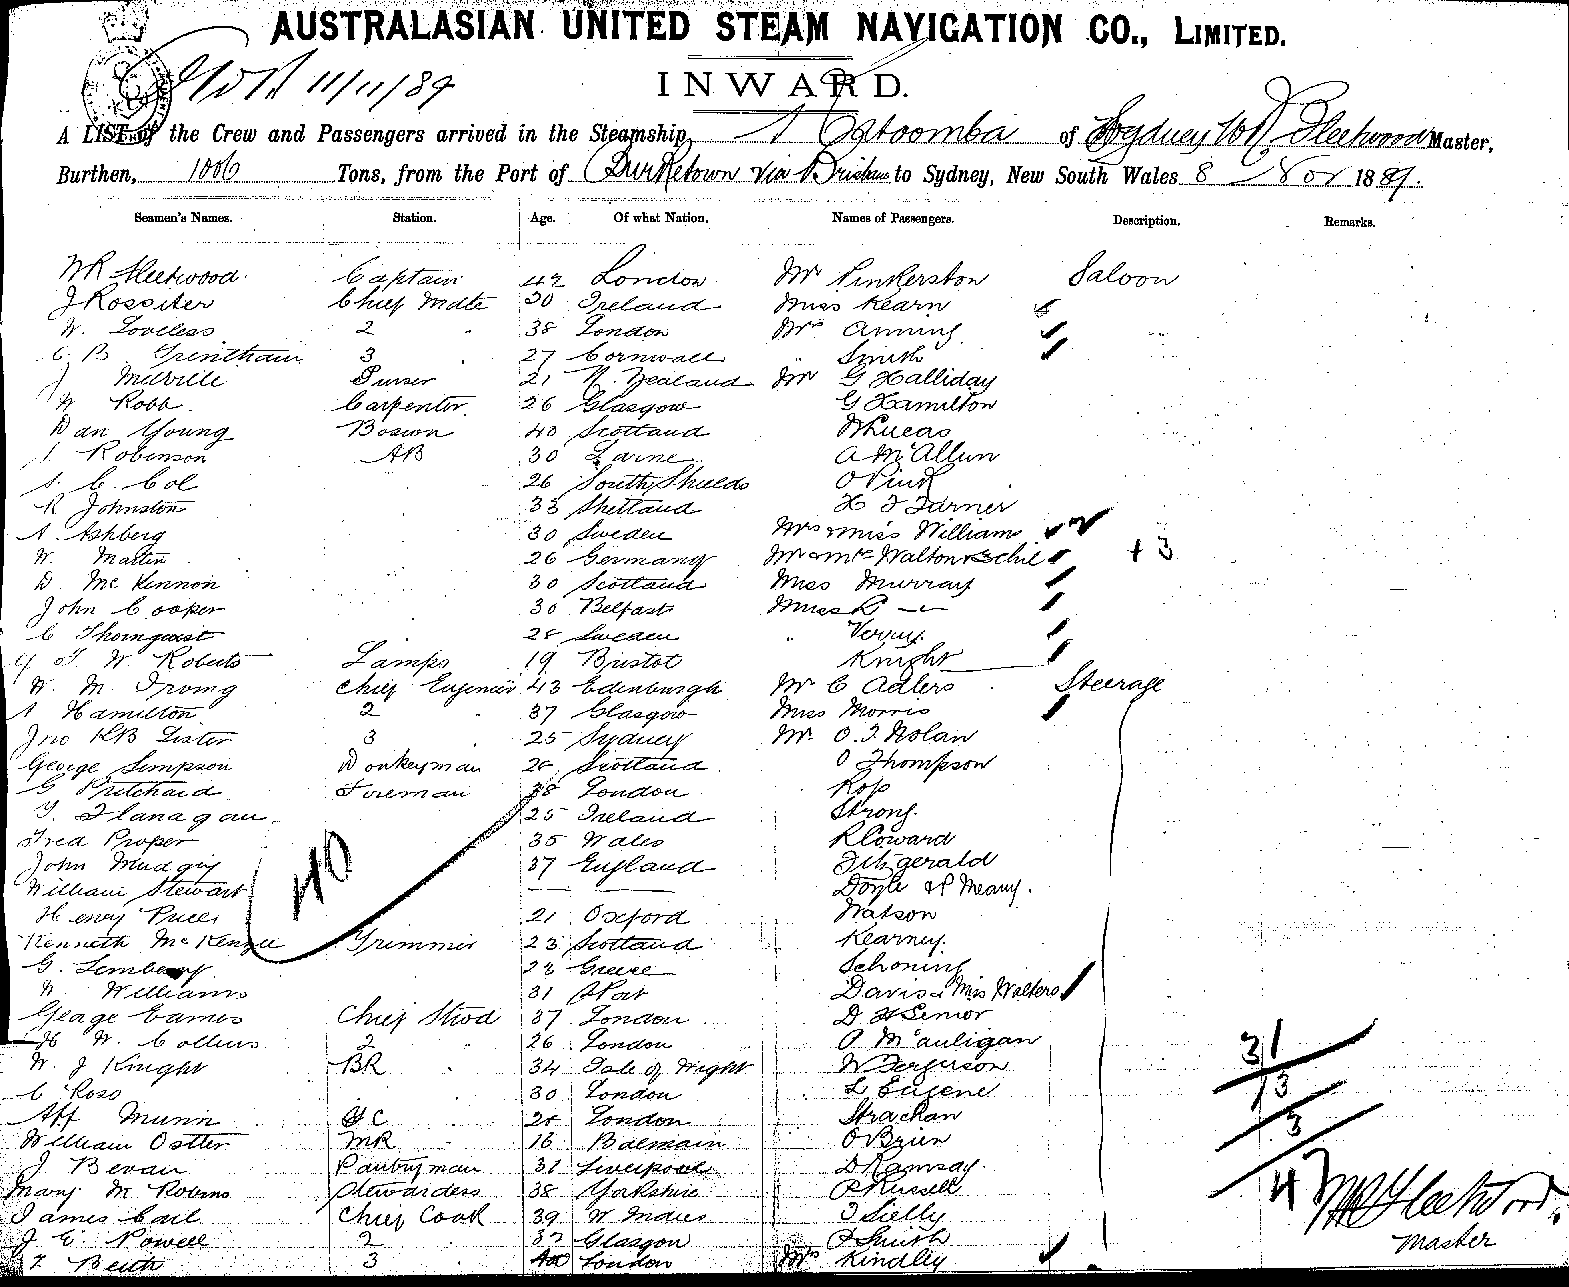 AUSTRALASIAN UNITED STEAM NAVIGATION CO., LIMITED.
11/11/89 INWARD.
A LIST of the Crew and Passengers arrived in the Steamship, Catoomba of Sydney W R Fleetwood Master,
Burthen, 1006 Tons, from the Port of Burketown via Brisbane to Sydney, New South Wales 8 Nov 1889.
Seamen's Names. Station. Age. Of what Nation. Names of Passengers. Description. Remarks.
W R Fleetwood Captain 42 London Mr Pinkerston Saloon
J Rossiter Chief Mate 30 Ireland Miss Kearn
W. Loveless 2 38 London Mrs Anning
C B Trentham 3 27 Cornwall " Smith
J Milville Purser 21 N. Zealand Mr G Halliday
W Robb Carpenter 26 Glasgow G Hamilton
Dan Young Boswn 40 Scotland W Lucas
J. Robinson AB 30 Larne A McAllun
C. Col 26 South Shields O Pink
R Johnston 33 Shetland H J Farner
A Ashberg 30 Sweden Mrs & Miss William
W. Martin 26 Germany Mr & Mrs Walton & 3 chil + 3
D McKennon 30 Scotland Miss Murray
John Cooper 30 Belfast Miss
C Thornquist 28 Sweden " Verry
W Roberts Lamps 19 Bristol Knight
W. M. Irving Chief Engineer 43 Edinburgh Mr C Adlers Steerage
A Hamilton 2 37 Glasgow Miss Morris
Jno Lister 3 25 Sydney Mr O. J. Nolan
George Simpson Donkeyman 28 Scotland O Thompson
G Pritchard Fireman 38 London Ross
T. Flanagan 25 Ireland Strong
Fred Proper 35 Wales R Coward
John Mudgig 37 England Fitzgerald
William Stewart Doyle & P Meany.
Henry Prices 21 Oxford Watson
40
Kenneth McKenzie Trimmer 23 Scotland Kearney.
G. Lemberg 28 Greece Schoning
W Williams 31 Davis & Miss Walters
George Eames Chief Stwd 37 London D H Senior
H W. Collins 2 26 London P McAuligan
W. J Knight BR 34 Isle of Wight W Ferguson
C Ross 30 London L Eugene
Alf Munn 28 London Strachan
William Ostler MR 16 Balmain O Brien
J Bevan Pantryman 31 Liverpool D Ramsay
Mary M Robins Stewardess 38 Yorkshire P Russell
James Cail Chief Cook 39 W Indies J Lielly
J E Powell 2 32 Glasgow P Smith
F Beith 3 40 London Mrs Kindley
31
13
3
47
W R Fleetwood
Master